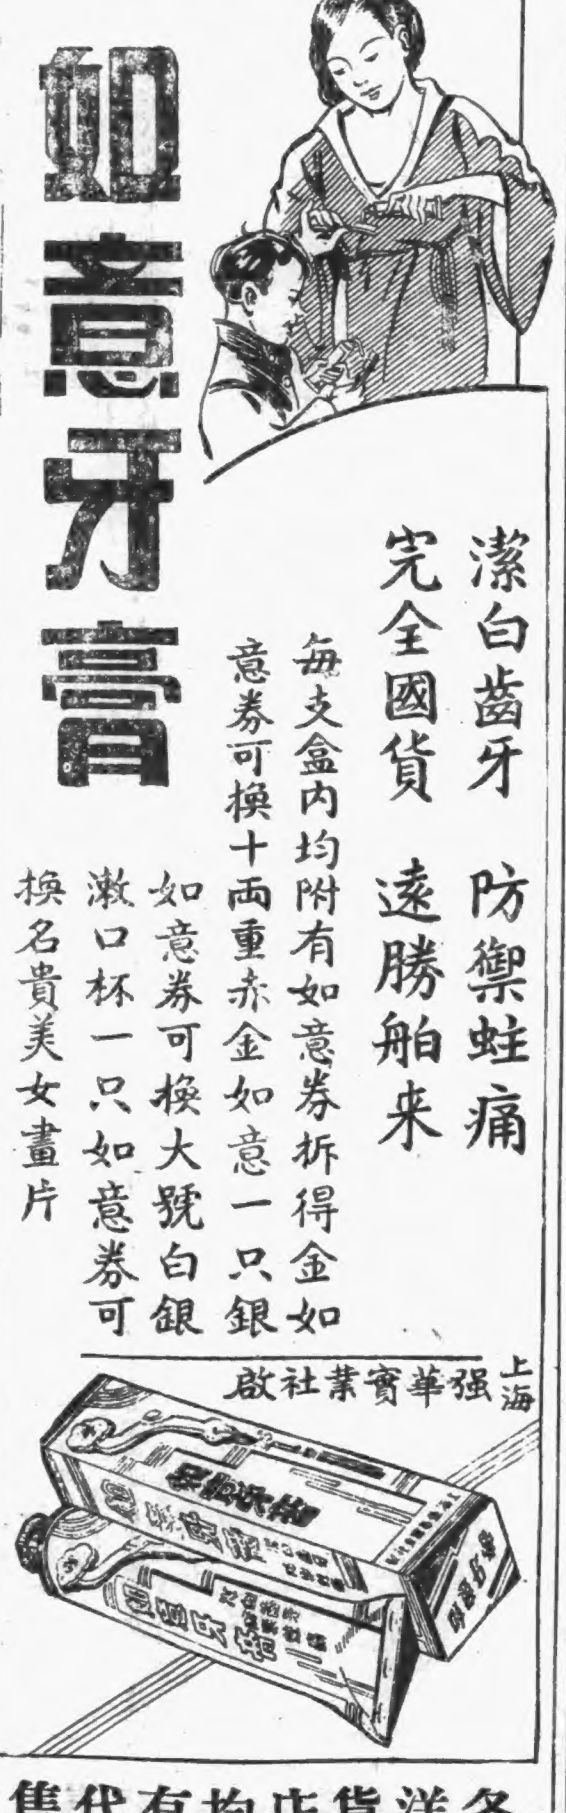 如意牙膏
潔白齒牙 防禦蛀痛
完全國貨 遠勝舶来
每支盒内均附有如意券拆得金如
意券可换十両重赤金如意一只銀
如意券可换大號白銀
漱口杯一只如意券可
换名貴美女畫片
上海强華實業社啟
各洋貨店均有代售